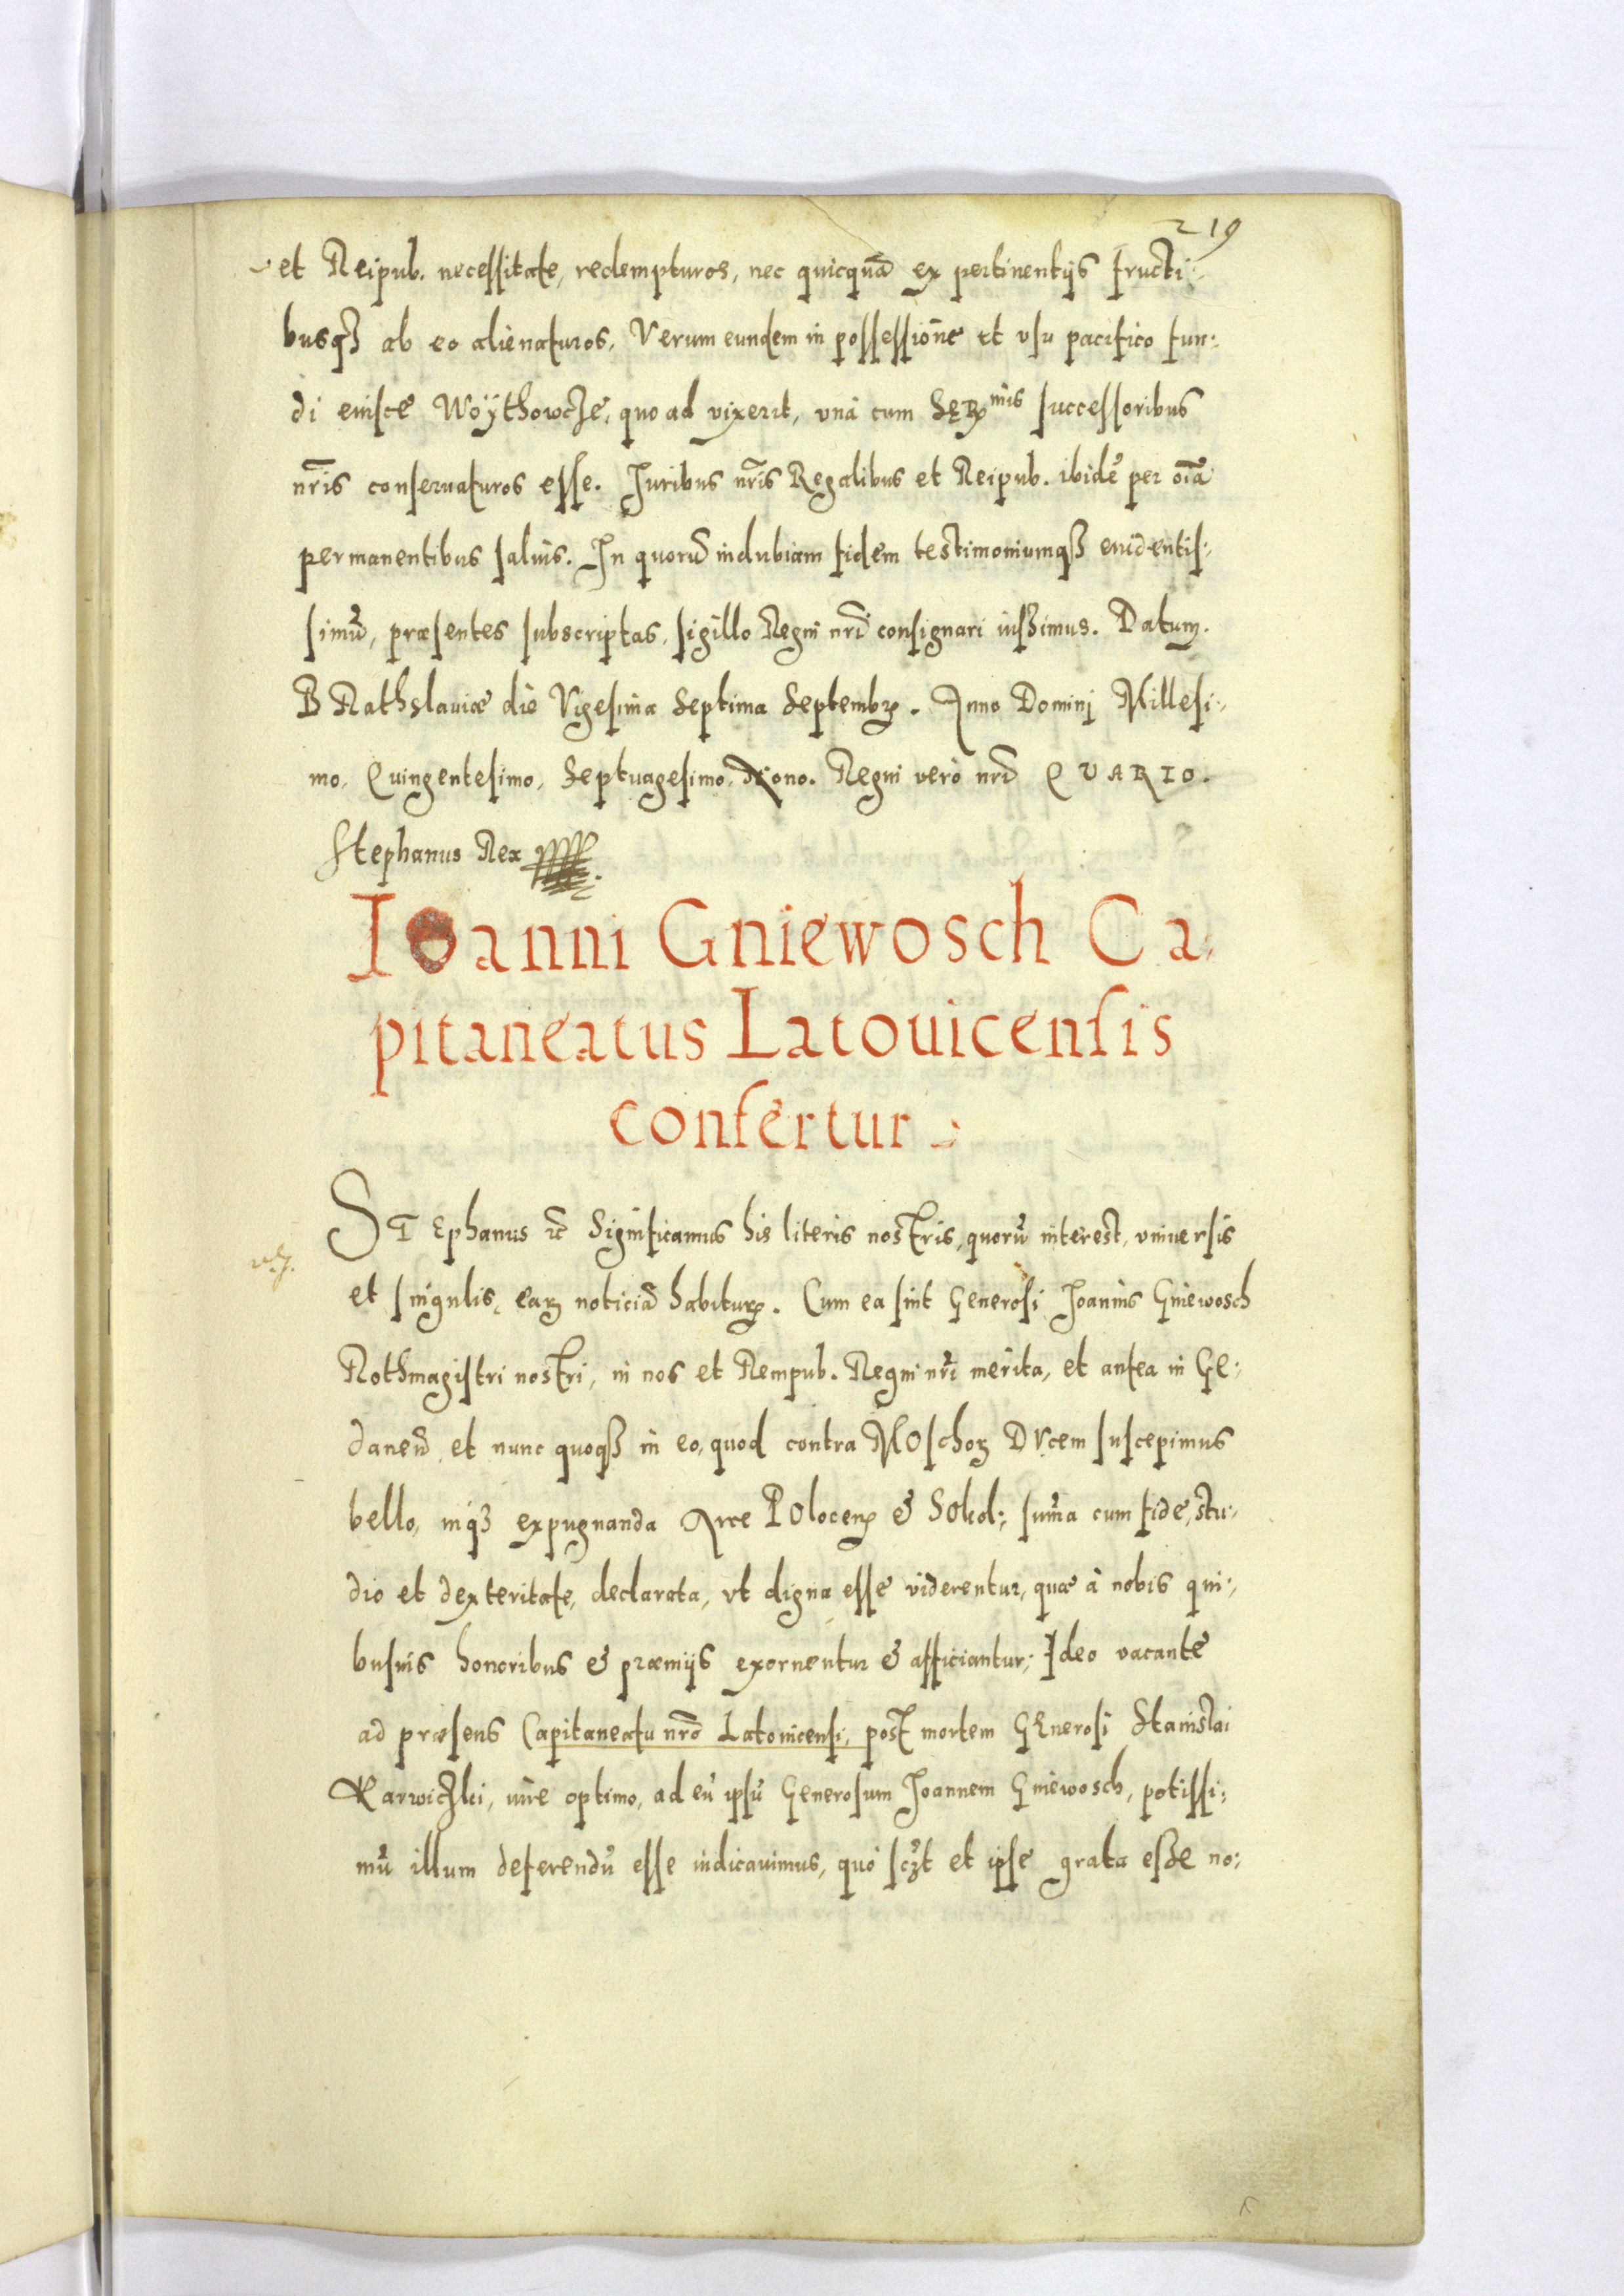 219
et Reipub. necessitate, redempturos, nec quicquā ex pertinentijs fructi:
busqȝ ab eo alienaturos, Verum eundem in possessione et vsu pacifico fun:
di eiusce Woÿthowcze, quo ad vixerit, vnà cum SERmis successoribus
nr̄is conseruaturos esse. Juribus nr̄is Regalibus et Reipub. ibidē per oīa
permanentibus saluis. In quorū indubiam fidem testimoniumqȝ euidentis:
simū, præsentes subscriptas, sigillo Regni nrī consignari iussimus. Datum.
BRathslauiæ die Vigesima Septima Septembꝝ. Anno Dominj Millesi:
mo, Quingentesimo, Septuagesimo, Nono. Regni verò nrī QVARTO.
Stephanus Rex
Ioanni Gniewosch Ca:
pitaneatus Latouicensis
confertur
STEphanus ꝛc Significamus his literis nostris, quorū interest, vniuersis
et singulis, earꝫ noticiā habituꝝ. Cum ea sint Generosi Joannis Gniewosch
Rothmagistri nostri, in nos et Rempub. Regni nrī merita, et antea in Ge:
danen̄, et nunc quoqȝ in eo, quod contra MOschoꝝ DVcem suscepimus
bello, inqȝ expugnanda Arce POlocenꝭ & SOkol: sum̄a cum fide, stu:
dio et dexteritate, declarata, vt digna esse viderentur, quæ à nobis qui:
busuis honoribus & præmijs exornentur & afficiantur; Ideo vacante
ad præsens Capitaneatu nrō Latouicensi, post mortem GEnerosi Stanislai
Karwiczki, iure optimo, ad eū ipsū Generosum Joannem Gniewosch, potissi:
mū illum deferendū esse iudicauimus, quò sczt et ipse grata esse no: